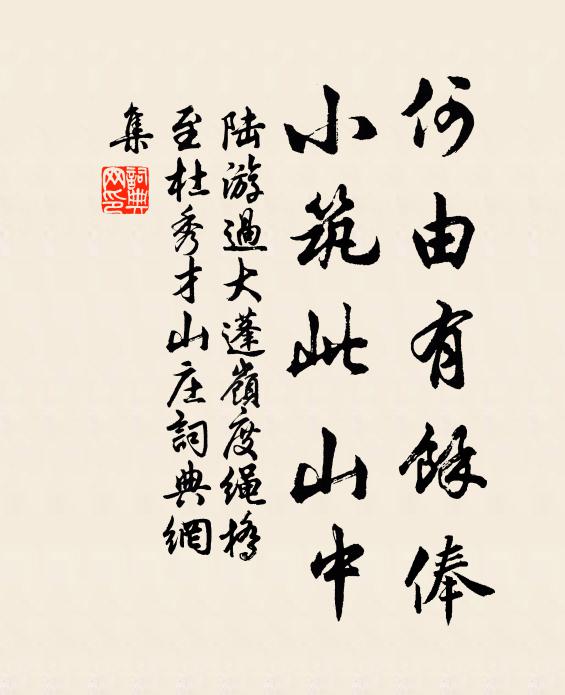 何由有餘俸
小筑此山中
陆游過大蓬嶺度绳橋
至杜秀才山庄詞典網
集
詞典
网印